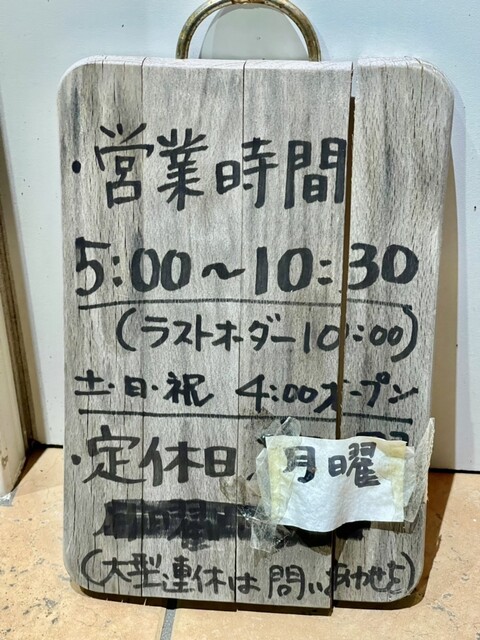 ・営業時間
5:00〜10:30
(ラストオーダー10:00)
土・日・祝 4:00オープン
・定休日 月曜
(大型連休は問い合わせを)